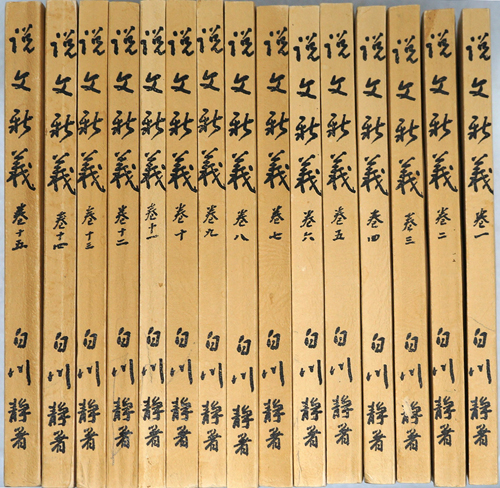 説文新義 巻一 白川静著
説文新義 巻二 白川静著
説文新義 巻三 白川静著
説文新義 巻四 白川静著
説文新義 巻五 白川静著
説文新義 巻六 白川静著
説文新義 巻七 白川静著
説文新義 巻八 白川静著
説文新義 巻九 白川静著
説文新義 巻十 白川静著
説文新義 巻十一 白川静著
説文新義 巻十二 白川静著
説文新義 巻十三 白川静著
説文新義 巻十四 白川静著
説文新義 巻十五 白川静著